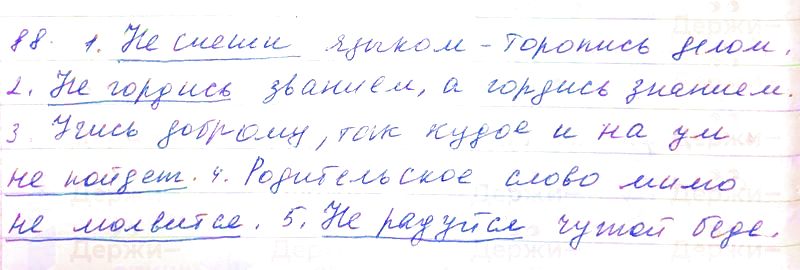 88. 1. Не спеши языком – торопись делом.
2. Не гордись званием, а гордись знанием.
3. Учись доброму, так худое и на ум
не пойдет. 4. Родительское слово мимо
не молвится. 5. Не радуйся чужой беде.